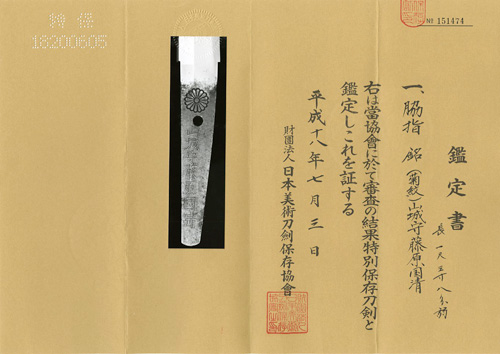 鑑定書
一、脇指 銘 (菊紋)山城守藤原国清
長一尺三寸八分弱
右は當協會に於て審査の結果特別保存刀剣と
鑑定しこれを証する
平成十八年七月三日
財團法人 日本美術刀劍保存協會
№ 151474
18200605